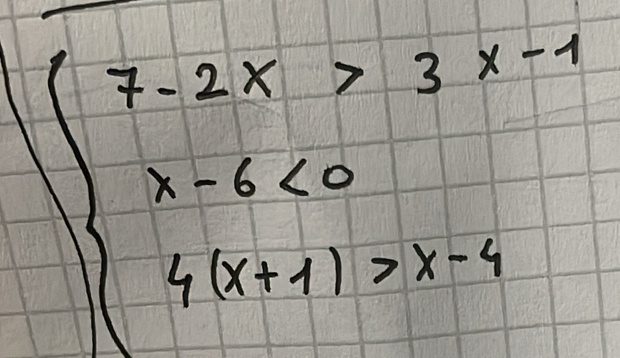 7-2x > 3x-1
x-6<0
4(x+1)>x-4